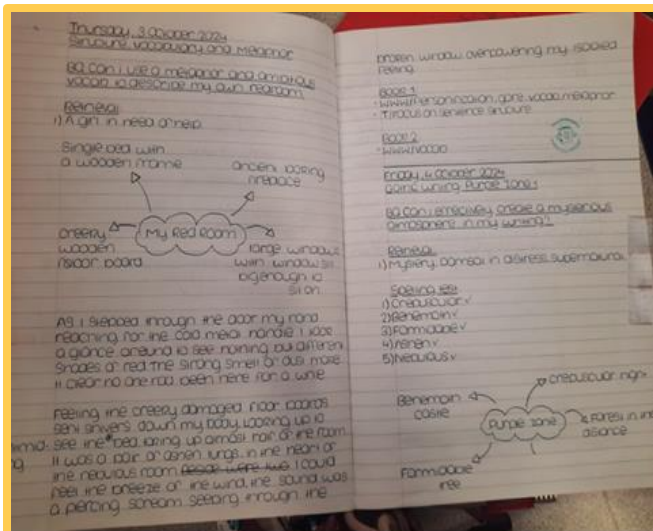 Thursday, 3 October 2024
Structure, vocabulary and metaphor
BQ Can i use a metaphor and ambitious
vocab to describe my own redroom
Retrieval
1) A girl in need of help
Single bed with
a wooden frame
ancient looking
fireplace
creepy
wooden
floor board
My Red Room
large windows
with window sill
big enough to
sit on
As I stepped through the door my hand
reaching for the cold metal handle I took
a glance around to see nothing but different
shades of red. The strong smell of dust made
it clear no one had been here for a while
Feeling the creepy damaged floor boards
sent shivers down my body. Looking up to
see the bed taking up almost half of the room
It was a pair of ashen lungs in the heart of
the nebulous room. I could
feel the breeze of the wind, the sound was
a piercing scream seeping through the
broken window overpowering my isolated
feeling.
Book 1
WWW/Personification, good vocab, metaphor
T/Focus on sentence structure
Book 2
WWW/vocab
Friday, 4 October 2024
Going writing Purple Zone 1
BQ Can i effectively create a mysterious
atmosphere in my writing?
Retrieval
1) Mystery, Damsel in distress, supernatural
Spelling test
1) Crepuscular ✓
2) Behemoth ✓
3) Formidable ✓
4) Ashen ✓
5) Nebulous ✓
Behemoth
castle
crepuscular night
Purple Zone
Forest in the
distance
Formidable
tree